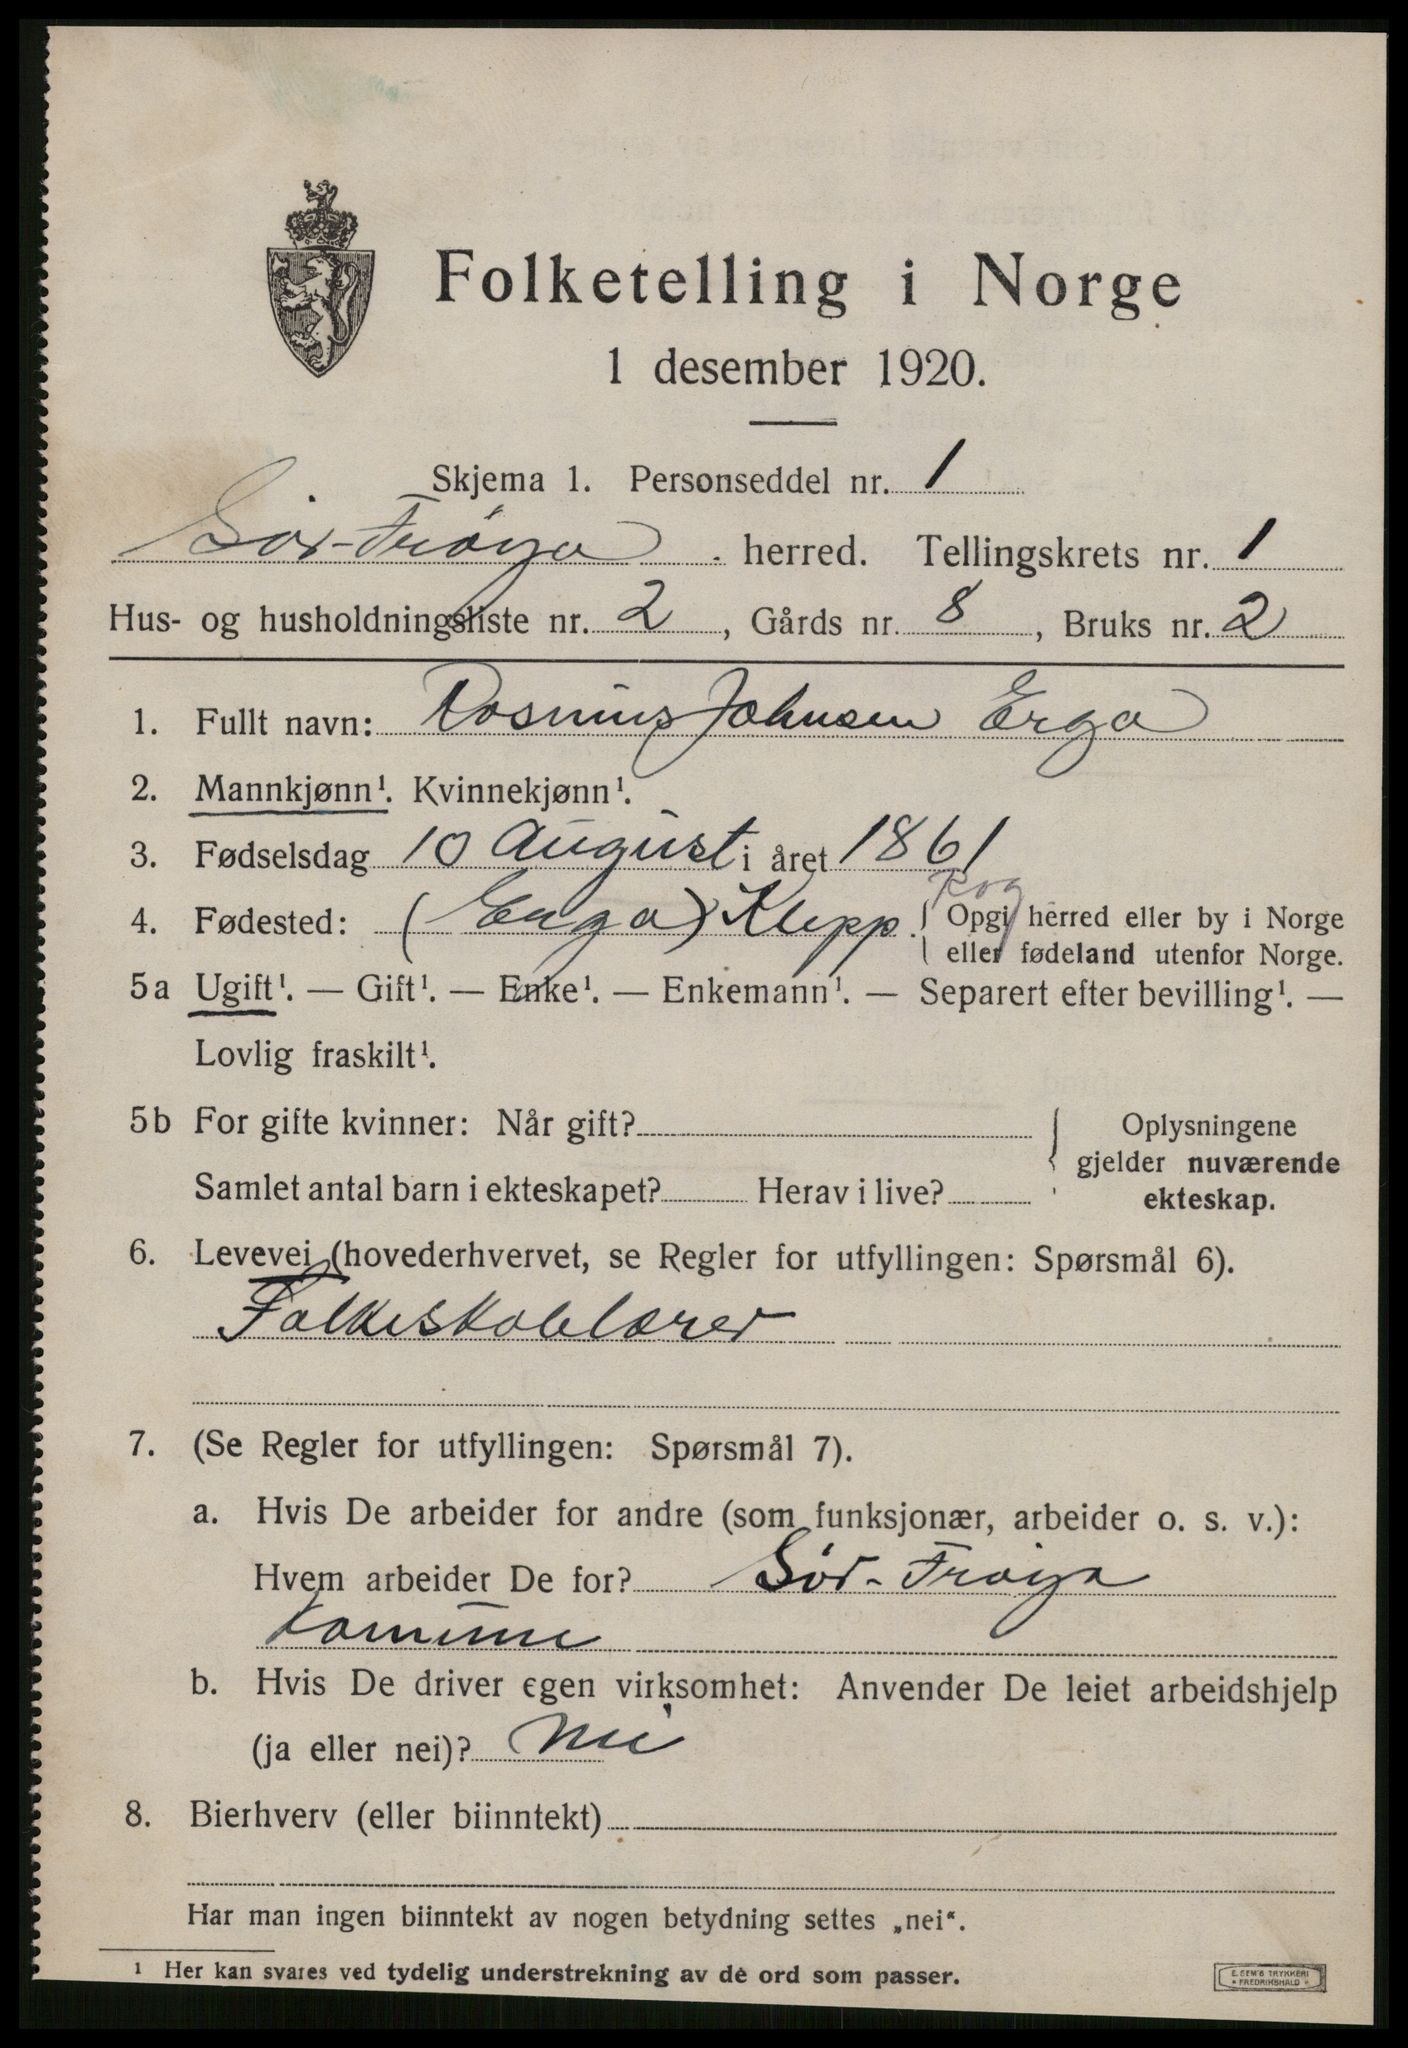 Folketelling i Norge
1 desember 1920.
Skjema 1. Personseddel nr. 1
Sör-Fröya herred. Tellingskrets nr. 1
Hus- og husholdningsliste nr. 2, Gårds nr. 8, Bruks nr. 2
1. Fullt navn: Rasmus Johnsen Erga
2. Mannkjønn¹. Kvinnekjønn¹.
3. Fødselsdag 10 August i året 1861
Rog
4. Fødested: (Erga) Klepp. { Opgi herred eller by i Norge
eller fødeland utenfor Norge.
5a Ugift¹. — Gift¹. — Enke¹. — Enkemann¹. — Separert efter bevilling¹. —
Lovlig fraskilt¹.
5b For gifte kvinner: Når gift? { Oplysningene
gjelder nuværende
Samlet antal barn i ekteskapet? Herav i live? ekteskap.
6. Levevei (hovederhvervet, se Regler for utfyllingen: Spørsmål 6).
Folkeskolelærer
7. (Se Regler for utfyllingen: Spørsmål 7).
a. Hvis De arbeider for andre (som funksjonær, arbeider o. s. v.):
Hvem arbeider De for? Sör-Fröya
Komune
b. Hvis De driver egen virksomhet: Anvender De leiet arbeidshjelp
(ja eller nei)? Nei
8. Bierhverv (eller biinntekt)
Har man ingen biinntekt av nogen betydning settes „nei“.
¹ Her kan svares ved tydelig understrekning av de ord som passer.
E. SEM'S TRYKKERI
FREDRIKSHALD